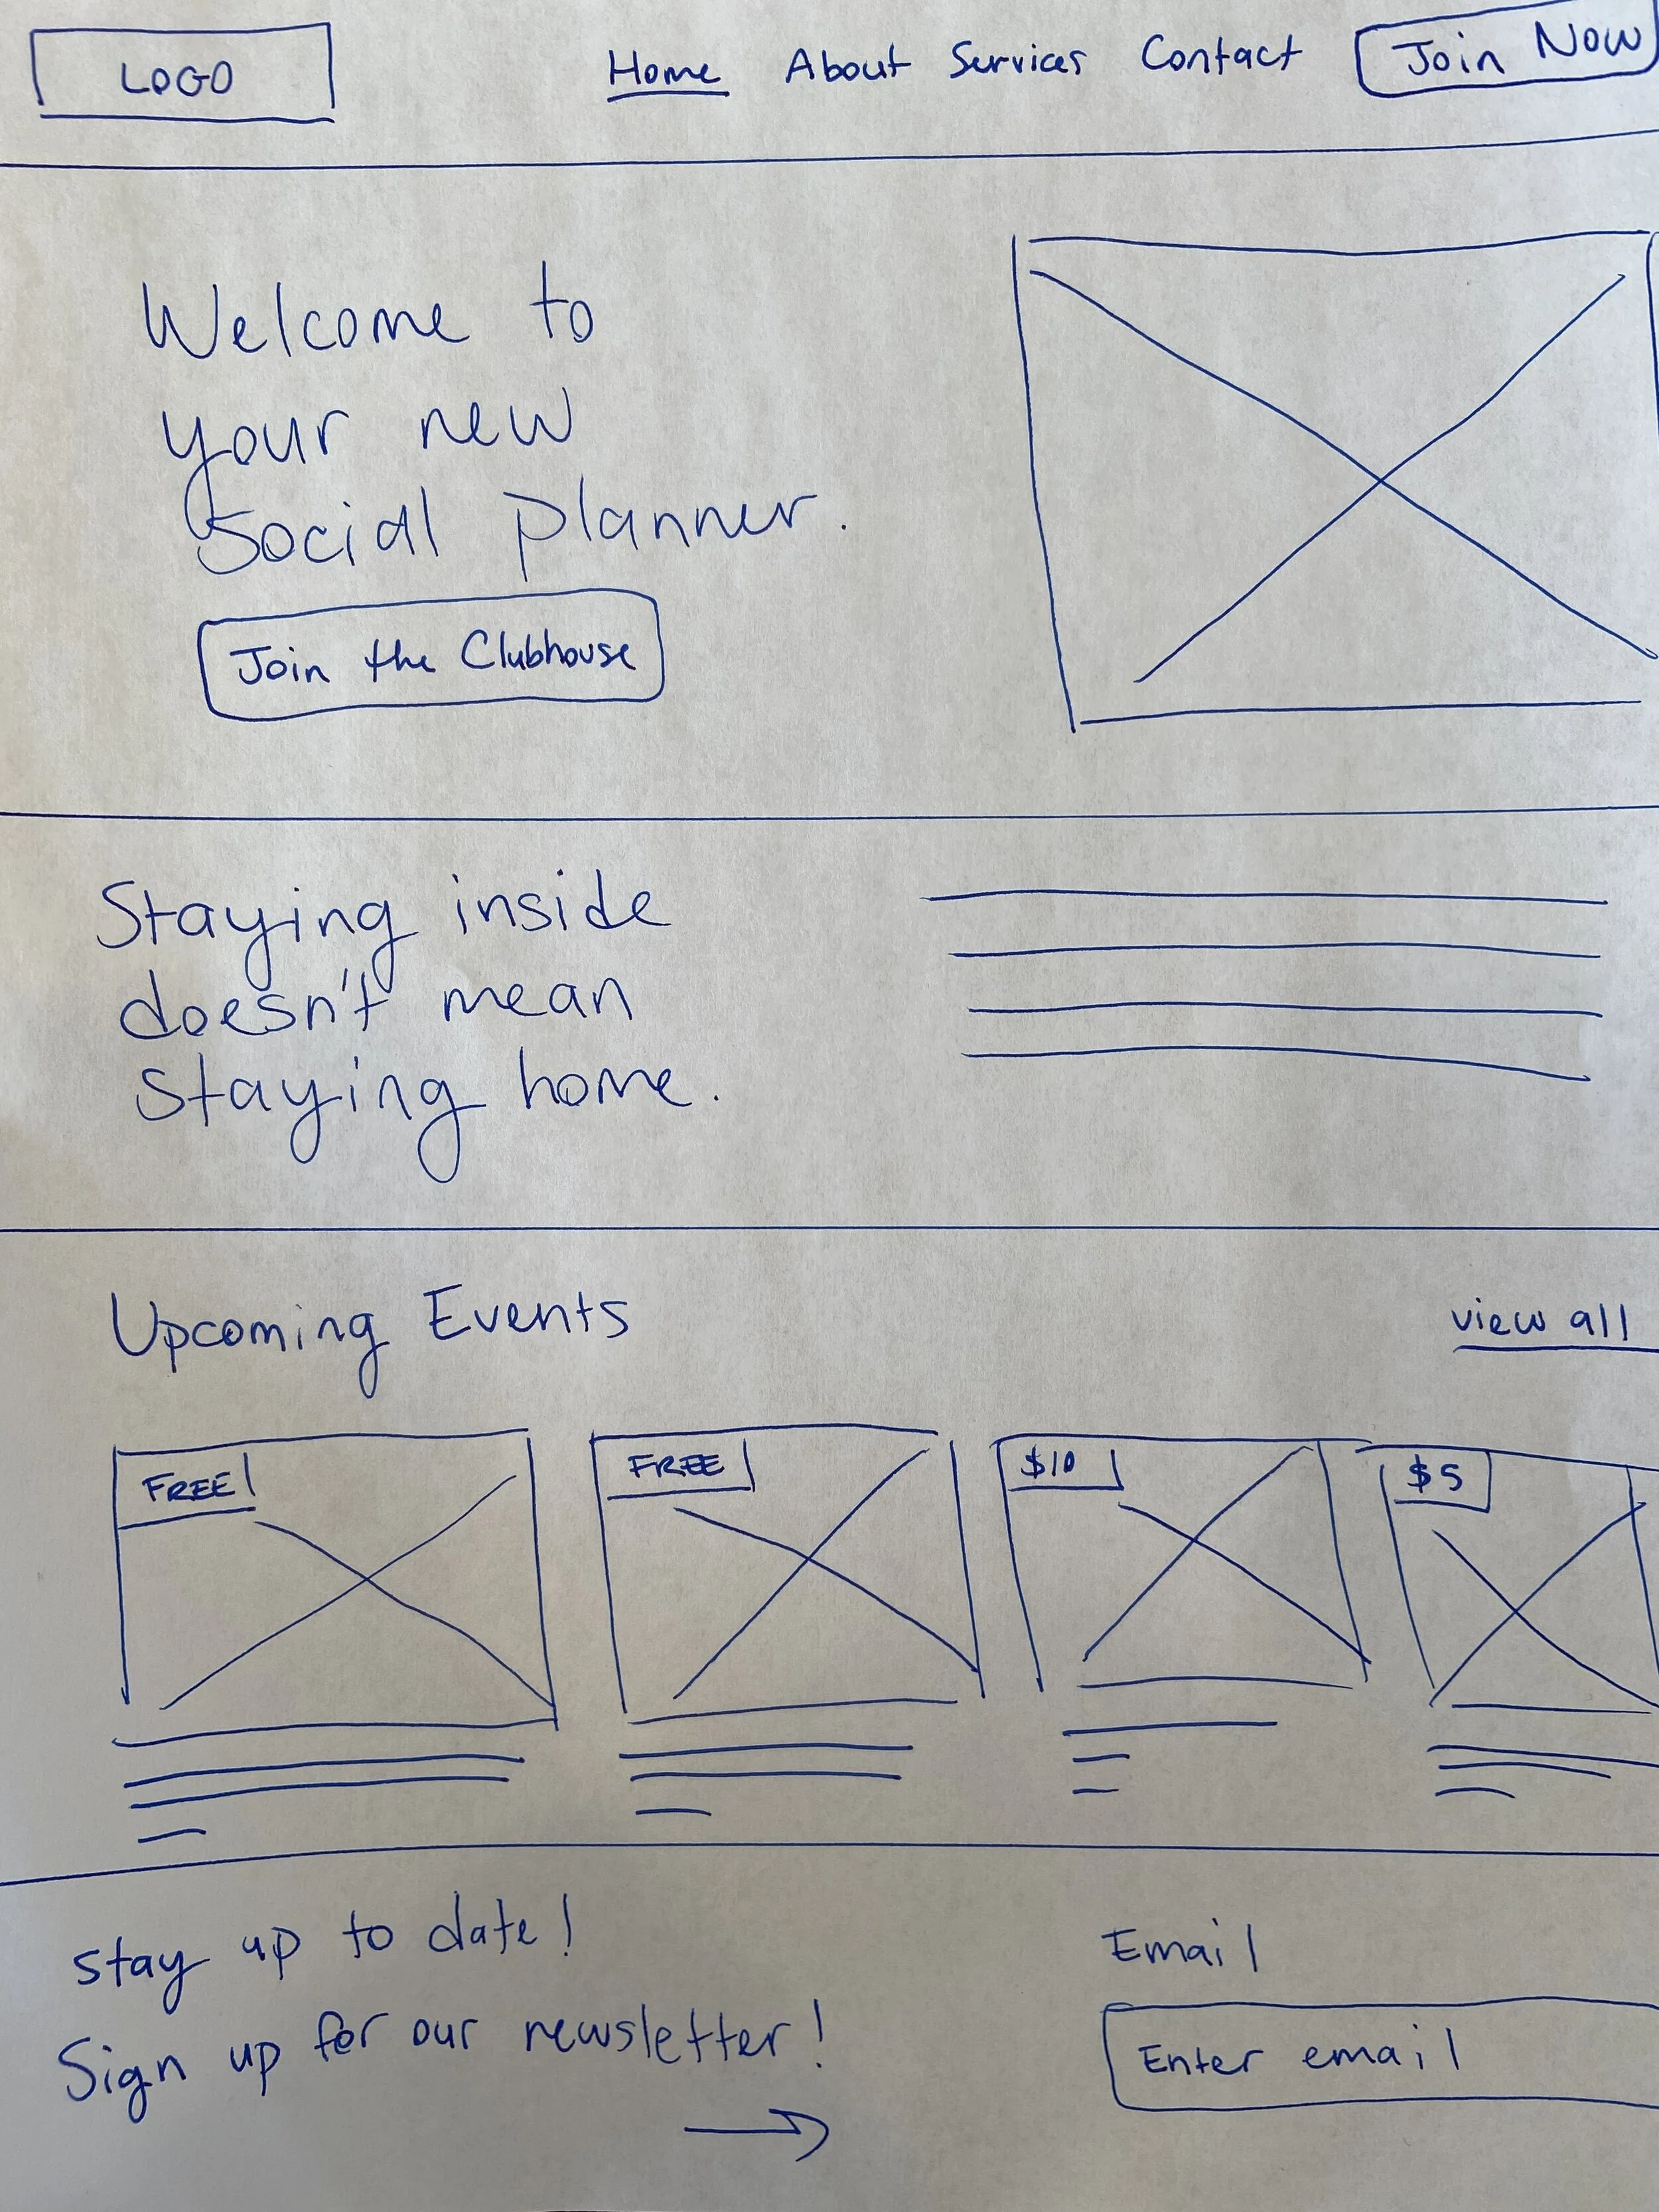 LOGO
Home About Services Contact Join Now
Welcome to
your new
social planner.
Join the Clubhouse
Staying inside
doesn't mean
staying home.
Upcoming Events
view all
FREE
FREE
$10
$5
stay up to date!
Sign up for our newsletter!
Email
Enter email